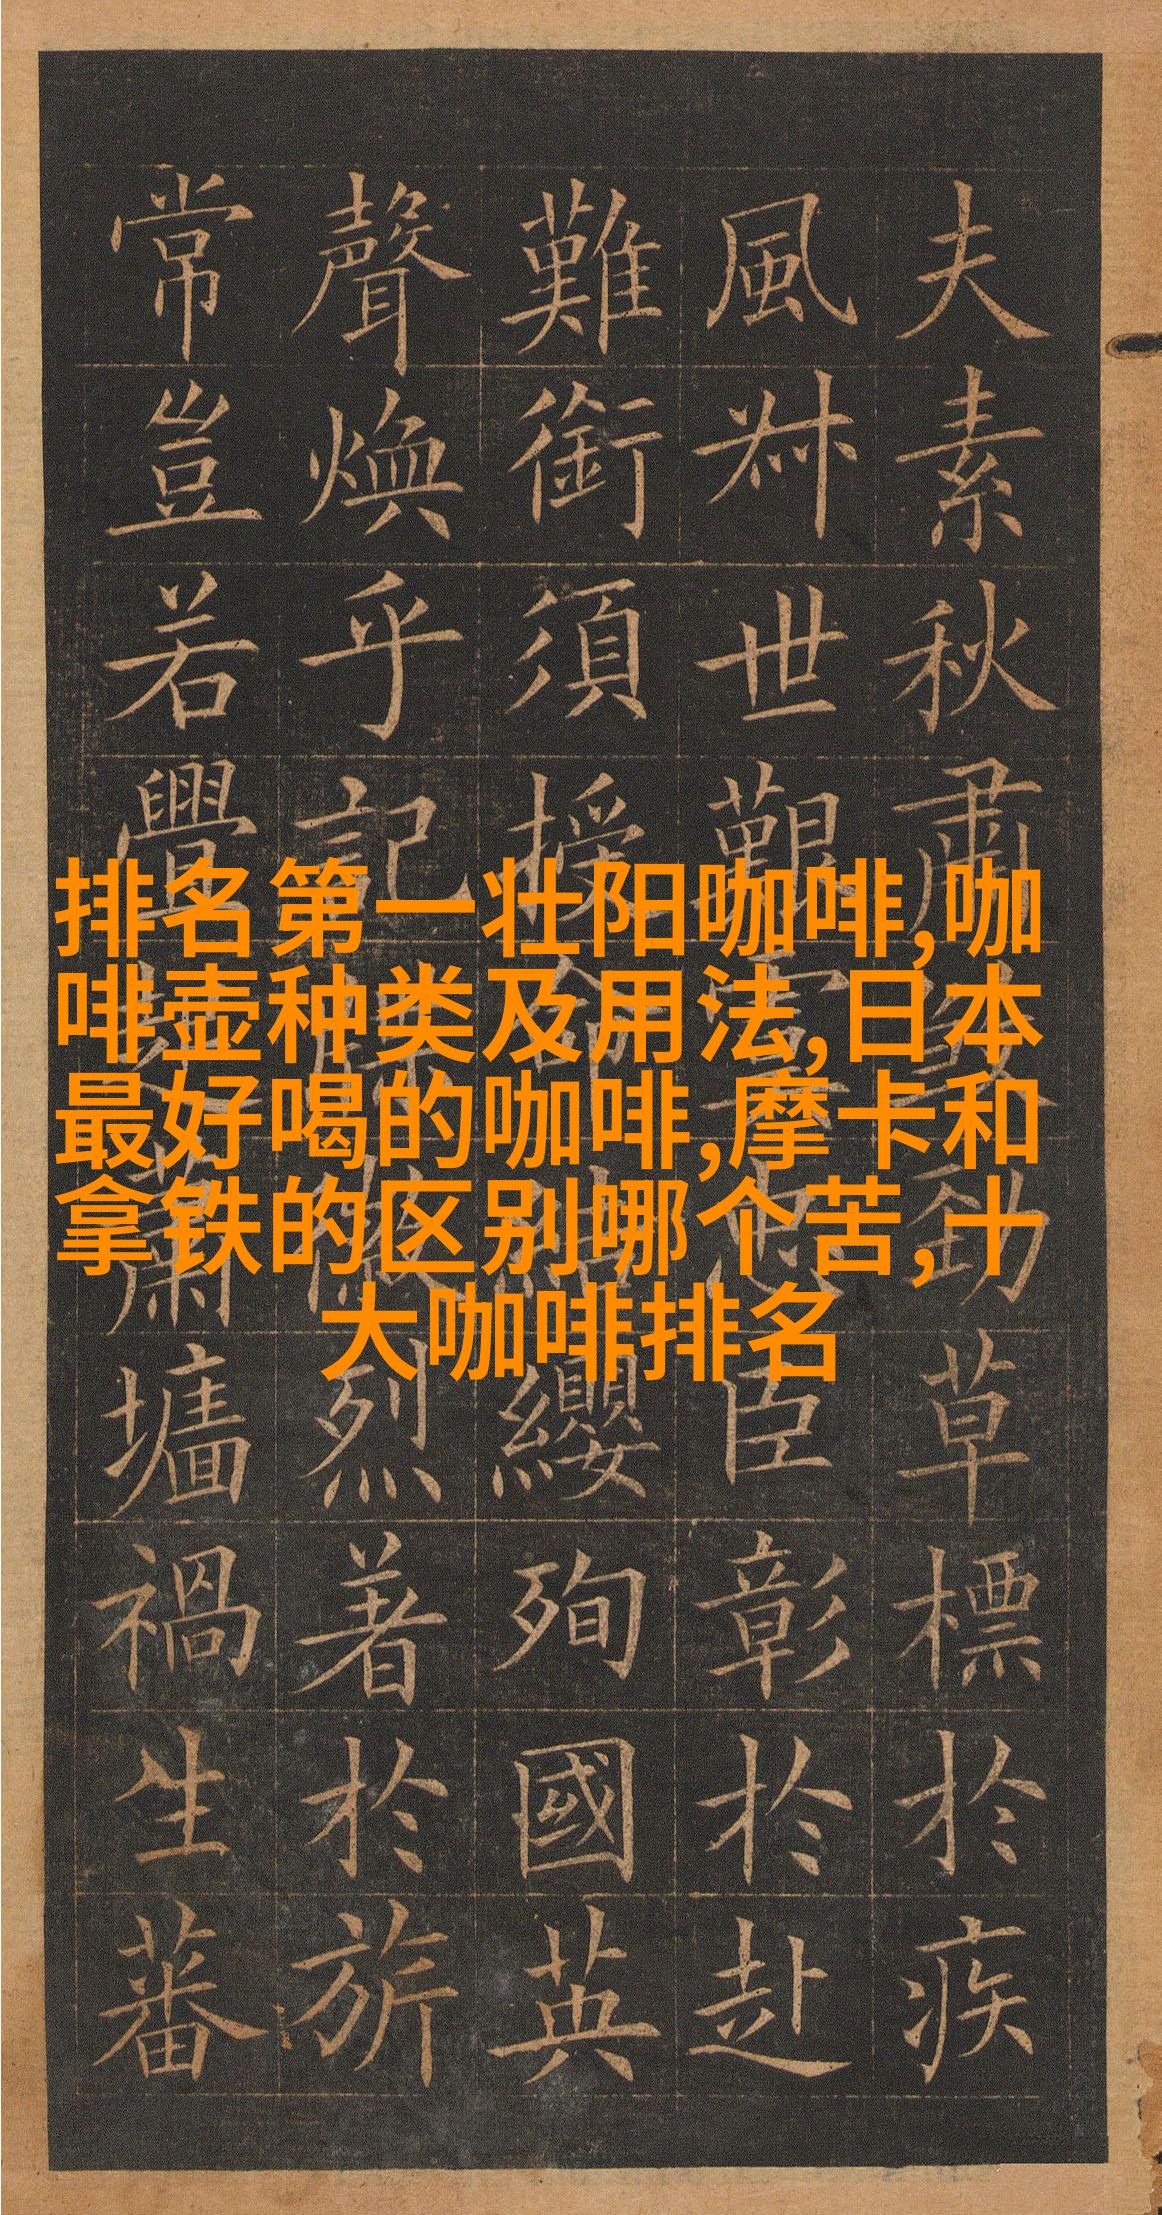 排名第一壮阳咖啡,咖
啡壶种类及用法,日本
最好喝的咖啡,摩卡和
拿铁的区别哪个苦,十
大咖啡排名
夫素秋肅勁草標於疾
風叔世艱忠臣彰於赴
難銜須授纓殉國英
聲煥乎記烈著於旂
常豈若釁蕭墻禍生蕃